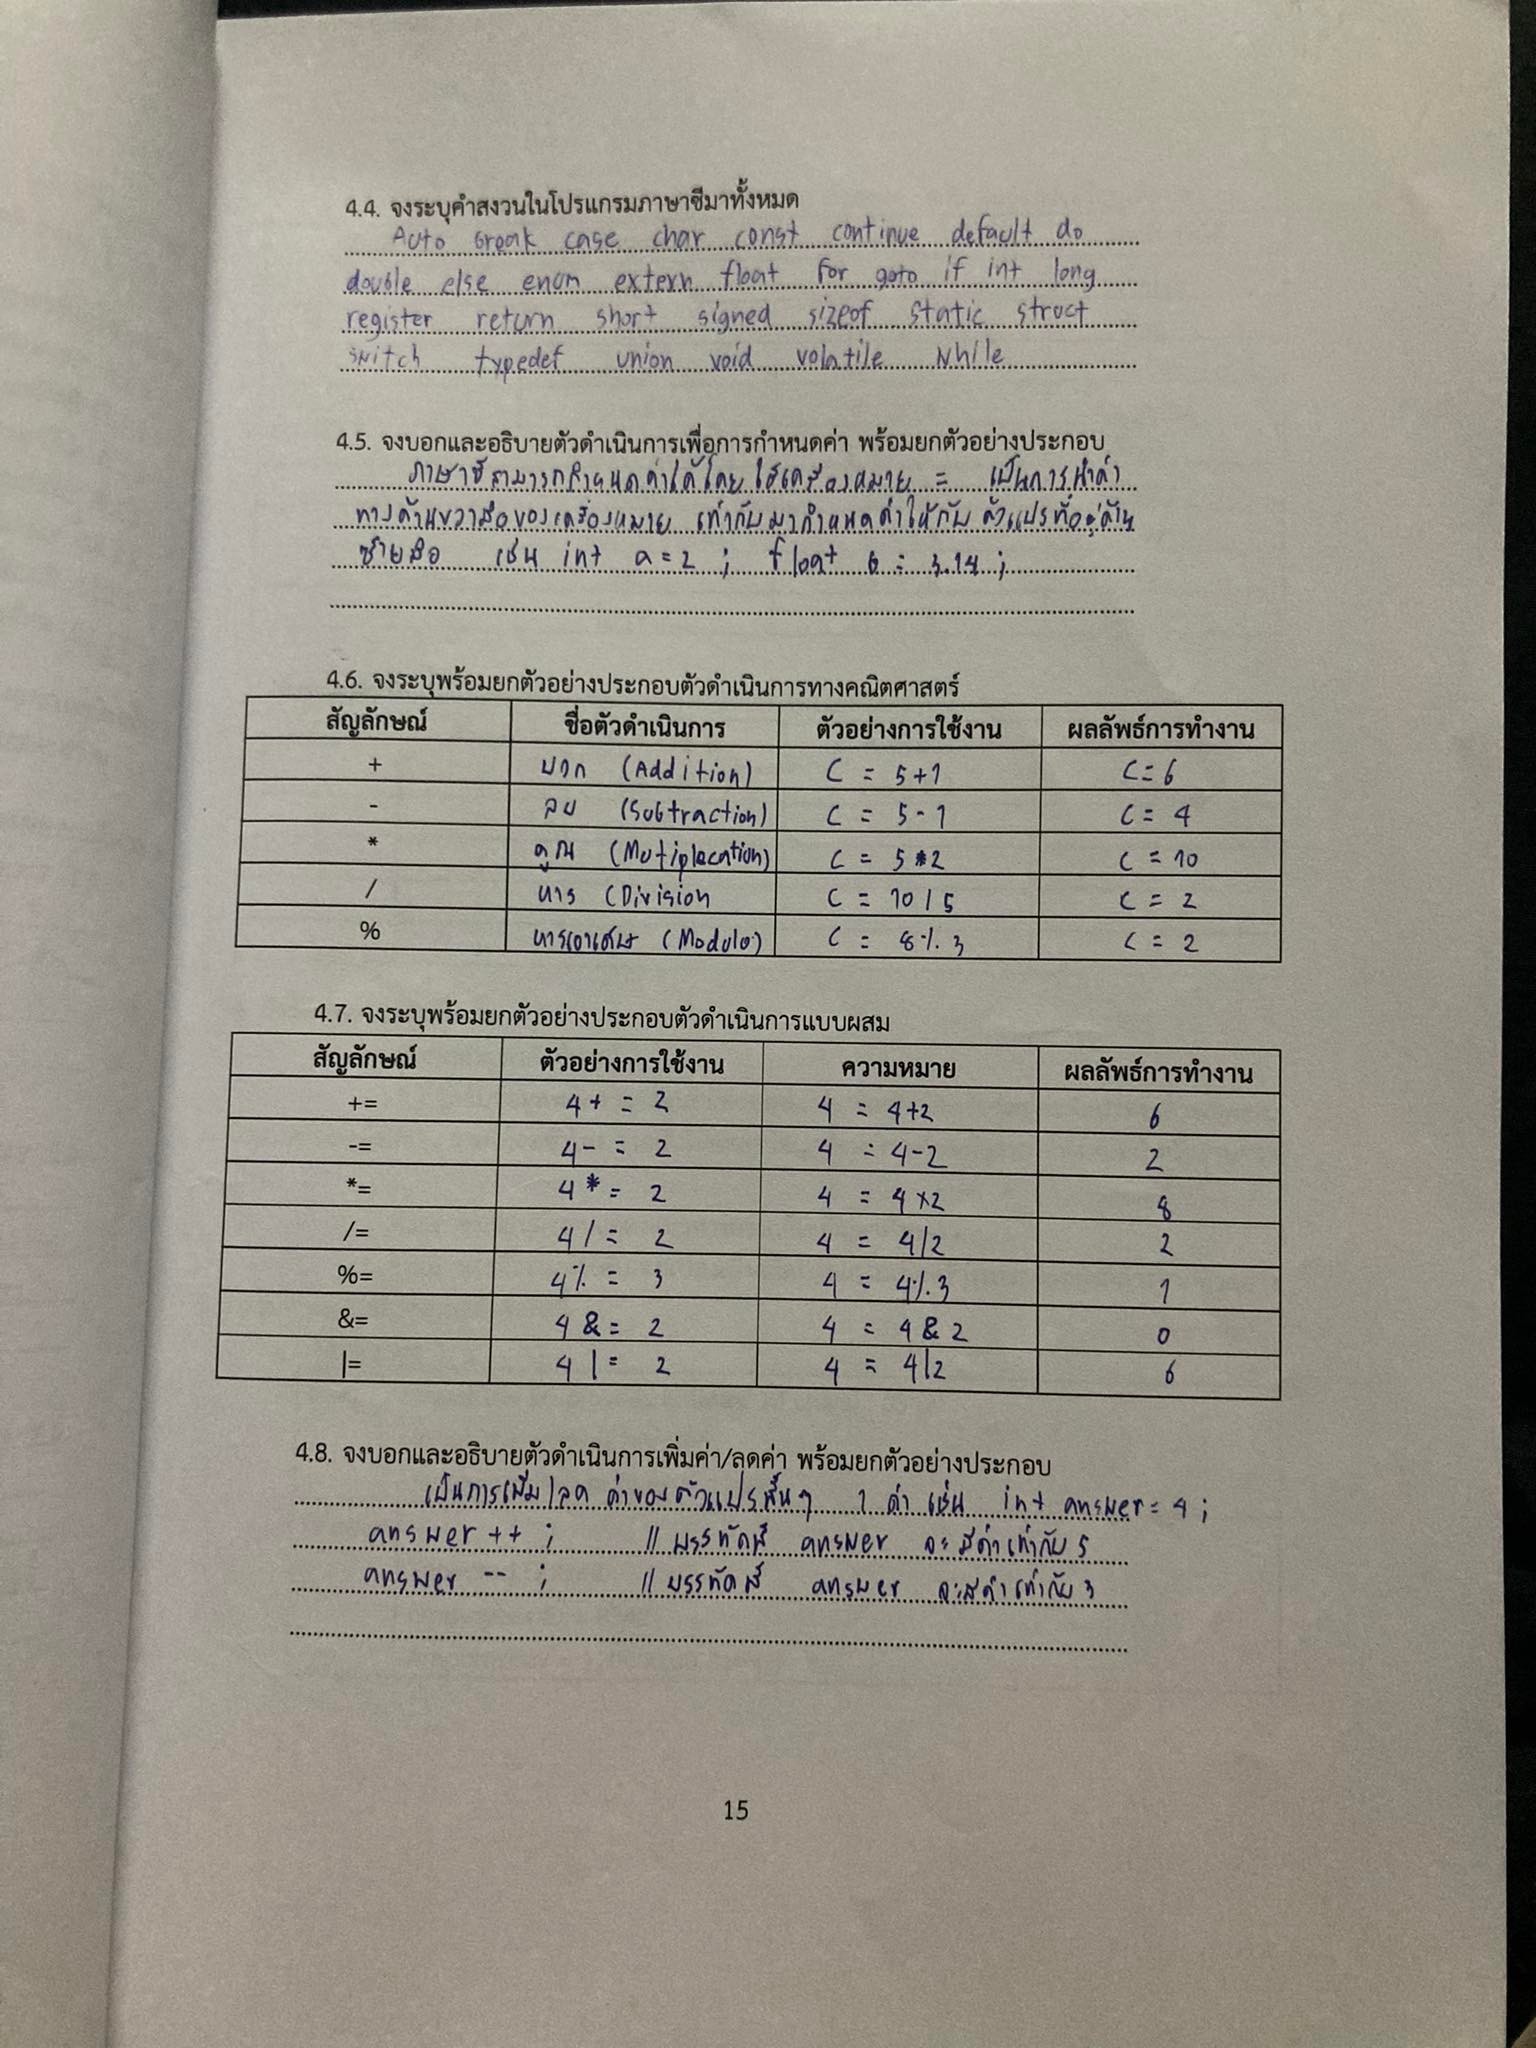 4.4. จงระบุคำสงวนในโปรแกรมภาษาซีมาทั้งหมด
Auto break case char const continue default do
double else enum extern float for goto if int long
register return short signed sizeof static struct
switch typedef union void volatile while
4.5. จงบอกและอธิบายตัวดำเนินการเพื่อการกำหนดค่า พร้อมยกตัวอย่างประกอบ
ภาษาซีสามารถกำหนดค่าได้โดยใช้เครื่องหมาย = เป็นการนำค่า
ทางด้านขวามือของเครื่องหมาย เท่ากับมากำหนดค่าให้กับ ตัวแปรที่อยู่ด้าน
ซ้ายมือ เช่น int a = 2 ; float b = 3.14 ;
4.6. จงระบุพร้อมยกตัวอย่างประกอบตัวดำเนินการทางคณิตศาสตร์
สัญลักษณ์ ชื่อตัวดำเนินการ ตัวอย่างการใช้งาน ผลลัพธ์การทำงาน
+ บวก (Addition) C = 5+1 C = 6
- ลบ (Subtraction) C = 5-1 C = 4
* คูณ (Mutiplacation) C = 5*2 C = 10
/ หาร (Division C = 10/5 C = 2
% หารเอาเศษ (Modulo) C = 8%3 C = 2
4.7. จงระบุพร้อมยกตัวอย่างประกอบตัวดำเนินการแบบผสม
สัญลักษณ์ ตัวอย่างการใช้งาน ความหมาย ผลลัพธ์การทำงาน
+= 4+ = 2 4 = 4+2 6
-= 4- = 2 4 = 4-2 2
*= 4* = 2 4 = 4×2 8
/= 4/ = 2 4 = 4/2 2
%= 4% = 3 4 = 4%3 1
&= 4 & = 2 4 = 4 & 2 0
|= 4 | = 2 4 = 4|2 6
4.8. จงบอกและอธิบายตัวดำเนินการเพิ่มค่า/ลดค่า พร้อมยกตัวอย่างประกอบ
เป็นการเพิ่ม/ลด ค่าของตัวแปรนั้นๆ 1 ค่า เช่น int answer = 4 ;
answer ++ ; // บรรทัดนี้ answer จะมีค่าเท่ากับ 5
answer -- ; // บรรทัดนี้ answer จะมีค่าเท่ากับ 3
15